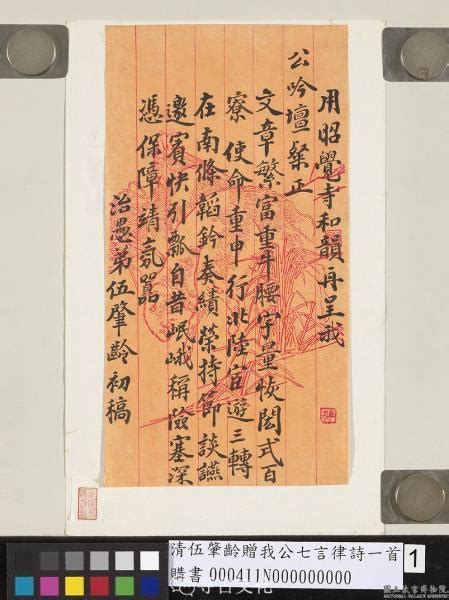 用昭覺寺和韻再呈我
公吟壇粲正
文章繁富重牛腰宇量恢閎式百
寮使命重申行北陸宦遊三轉
在南條韜鈐奏績榮持節談讌
邀賓快引瓢自昔岷峨稱險塞深
憑保障靖氛囂
治愚弟伍肇齡初稿
清伍肇齡贈我公七言律詩一首
購書 000411N000000000
1
國立故宮博物院
NATIONAL PALACE MUSEUM